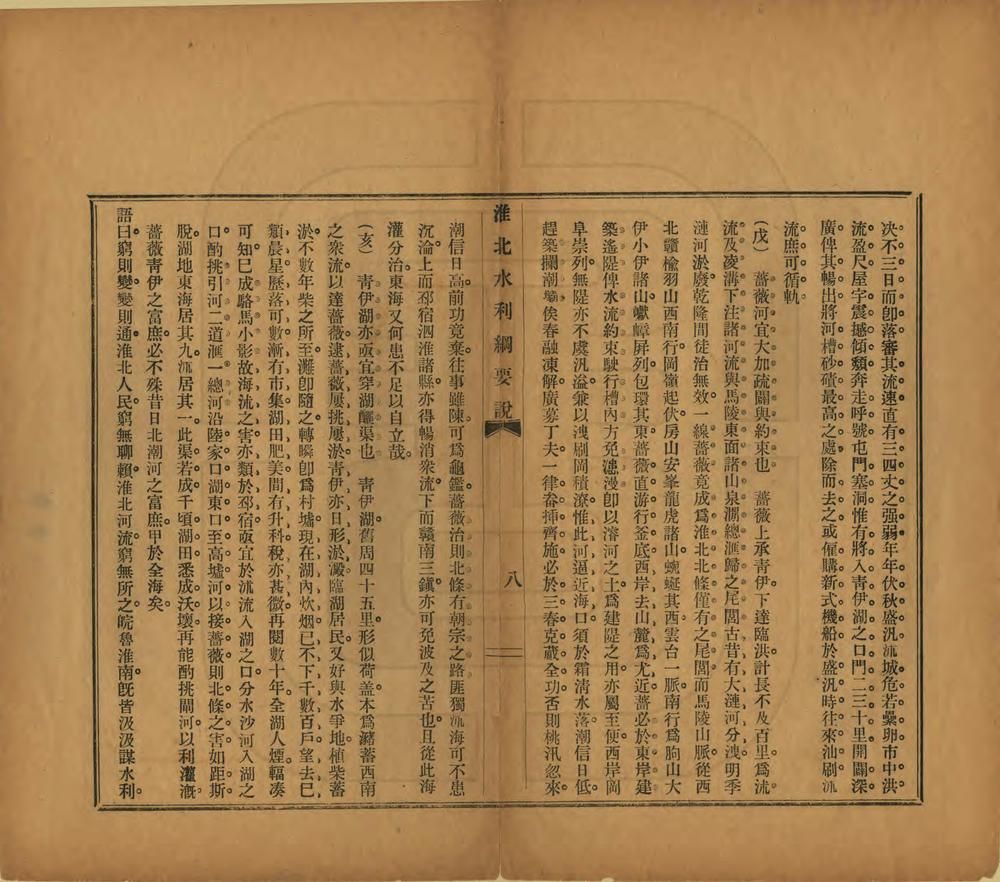 決不三日而卽落審其流速直有三四丈之强弱。年年伏秋盛汛沭城危若纍卵市中洪
流盈尺屋宇震撼傾頽奔走呼號屯門塞洞惟有將入青伊湖之口門二三十里開闢深
廣俾其暢出將河槽砂磧最高之處除而去之或僱購新式機船於盛汛時往來汕刷沭
流庶可循軌。
(戊) 薔薇河宜大加疏闢與約束也 薔薇上承青伊下達臨洪計長不及百里爲沭
流及凌溝下注諸河流與馬陵東面諸山泉澗總滙歸之尾閭古昔有大漣河分洩明季
漣河淤廢乾隆間徒治無效一線薔薇竟成爲淮北北條僅有之尾閭而馬陵山脈從西
北贛楡羽山西南行岡嶺起伏房山安峯龍虎諸山蜿蜒其西雲台一脈南行爲朐山大
伊小伊諸山巘嶂屏列包環其東薔薇直游行釜底西岸去山麓爲尤近薔必於東岸建
築遙隄俾水流約束駛行槽內方免漶漫卽以濬河之土爲建隄之用亦屬至便西岸岡
阜崇列無隄亦不虞汎溢兼以洩刷岡積潦惟此河逼近海口須於霜淸水落潮信日低。
趕築攔潮壩俟春融凍解廣募丁夫一律畚挿齊施必於三春克蕆全功否則桃汛忽來。
淮北水利綱要說 八
潮信日高前功竟棄往事雖陳可爲龜鑑薔薇治則北條有朝宗之路匪獨沭海可不患
沉淪上而邳宿泗淮諸縣亦得暢消衆流下而贛南三鎭亦可免波及之苦也且從此海
灌分治東海又何患不足以自立哉。
(亥) 青伊湖亦亟宜穿湖釃渠也 青伊湖舊周四十五里形似荷盖本爲瀦蓄西南
之衆流以達薔薇逮薔薇屢挑屢淤青伊亦日形淤澱臨湖居民又好與水爭地植柴蓄
淤不數年柴之所至灘卽隨之轉瞬卽爲村墟現在湖內炊烟已不下千數百戶望去巳
類晨星歷落可數漸有市集湖田肥美間有升科稅亦甚微再閱數十年全湖人煙輻凑
可知巳成駱馬小影故海流之害亦類於邳宿亟宜於沭流入湖之口分水沙河入湖之
口酌挑引河二道滙一總河沿陸家口湖東口至高墟河以接薔薇則北條之害如距斯
脫湖地東海居其九沭居其一此渠若成千頃湖田悉成沃壤再能酌挑閘河以利灌漑
薔薇青伊之富庶必不殊昔日北潮河之富庶甲於全海矣
語曰窮則變變則通淮北人民窮無聊賴淮北河流窮無所之皖魯淮南旣皆汲汲謀水利。